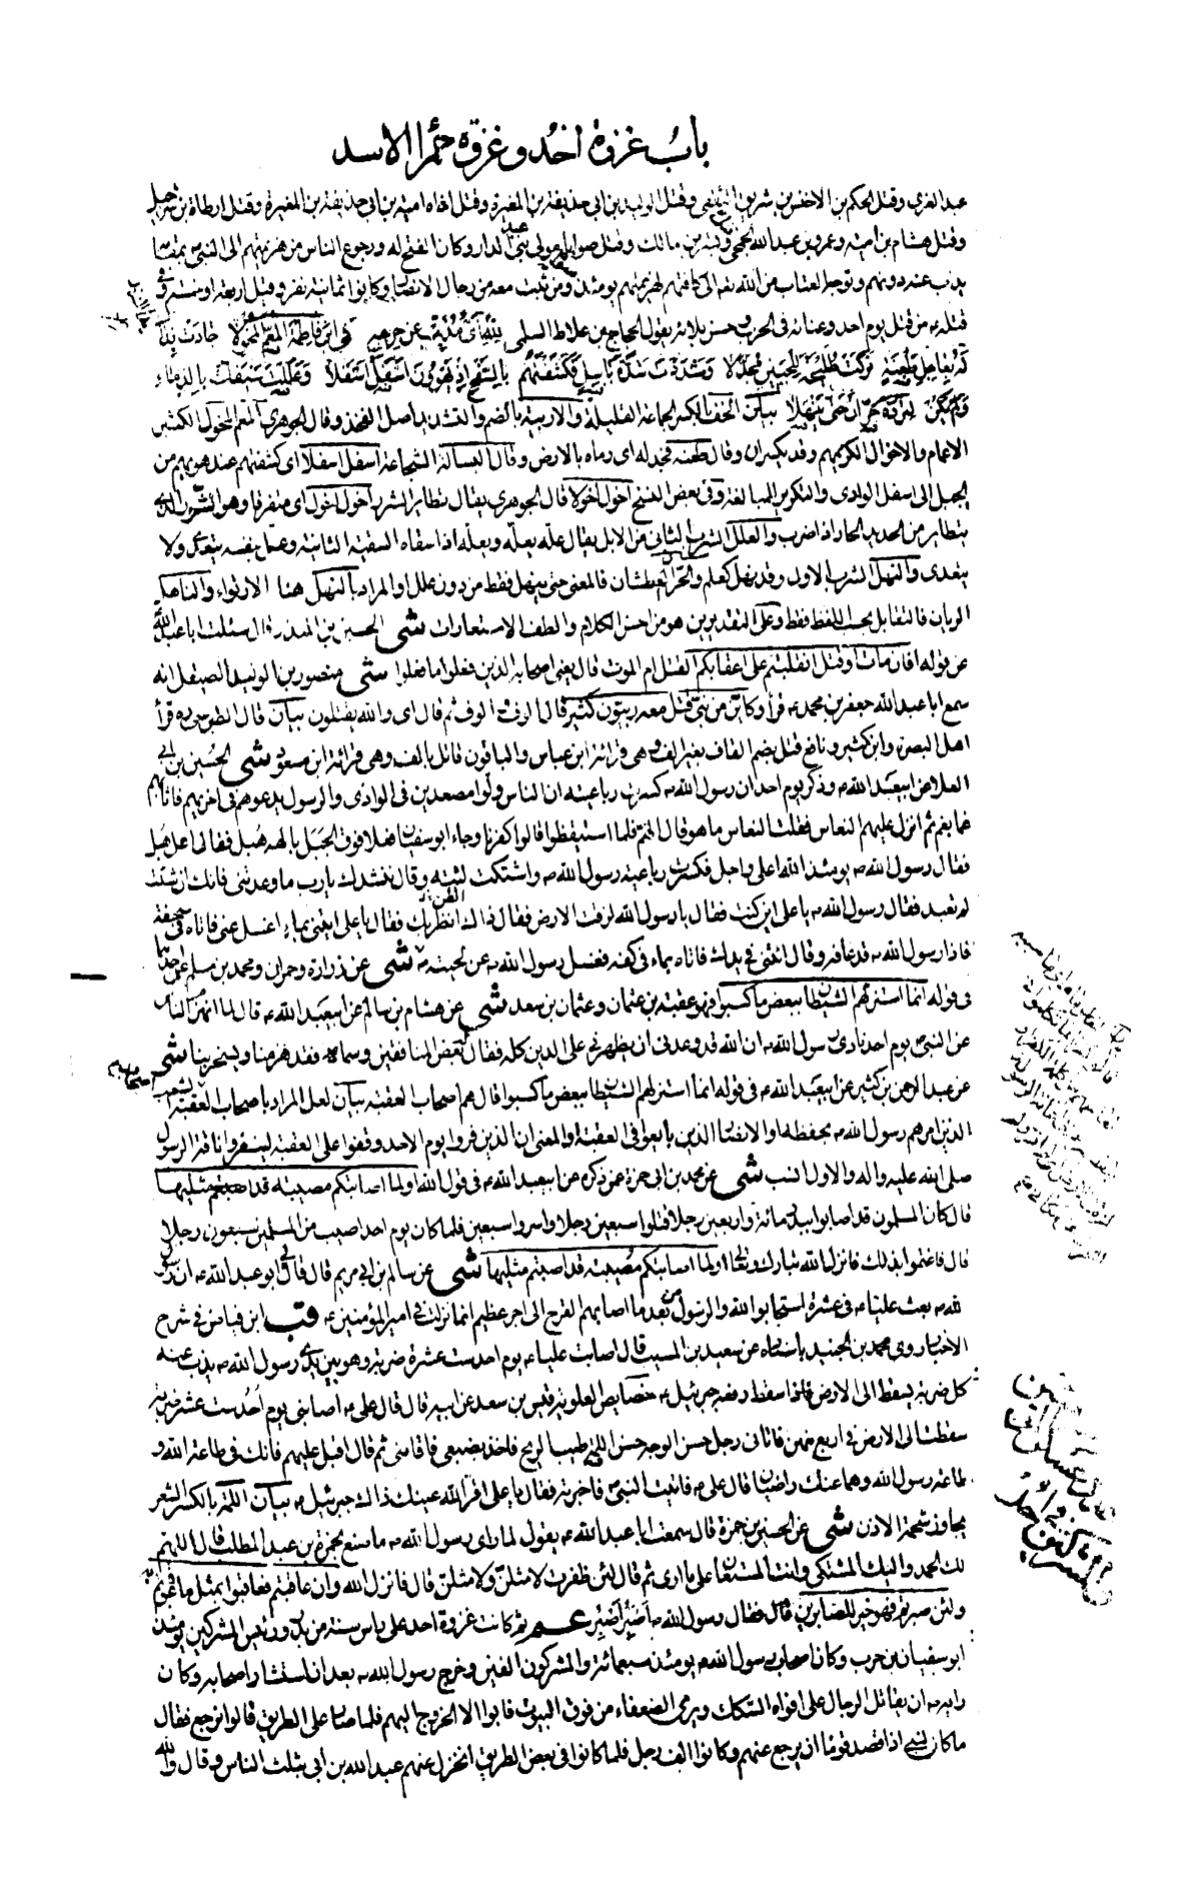 باب غزوة احد وغزوة حمراء الاسد
عبد العزى وقتل الحكم بن الاخنس بن شريق الثقفى وقتل الوليد بن ابى حذيفة بن المغيرة وقتل اخاه امية بن ابى حذيفة بن المغيرة وقتل ارطاة بن شرحبيل
وقتل هشام بن امية وعمرو بن عبد الله الجمحى وبشر بن مالك وقتل صوابا مولى بنى عبد الدار وكان الفتح له ورجوع الناس من هزيمتهم الى النبى ص بمقامه
يذب عنه دونهم وتوجه العتاب من الله تعالى الى كافتهم لهزيمتهم يومئذ ومن ثبت معه من رجال الانصار وكانوا ثمانية نفر وقيل اربعة او خمسة وفى
قتله ع من قتل يوم احد وعنائه فى الحرب وحسن بلائه يقول الحجاج بن علاط السلمى لله اى مذبب عن حزبه اعنى ابن فاطمة المعم المخولا جادت يداك
له بعاجل طعنة تركت طليحة للجبين مجدلا وشددت شدة باسل فكشفتهم بالسفح اذ يهوون اسفل اسفلا وعللت سيفك بالدماء
ولم تكن لترده حران حتى ينهلا بيان الخف بالكسر الجماعة القليلة والاربية بالضم والتشديد اصل الفخذ وقال الجوهرى المعم المخول الكثير
الاعمام والاخوال الكريمهم وقد يكسران وقال طعنه فجدله اى رماه بالارض وقال البسالة الشجاعة اسفل اسفلا اى كشفتهم عند هويهم من
الجبل الى اسفل الوادى والتكرير للمبالغة وفى بعض النسخ اخول اخولا قال الجوهرى يقال تطاير الشرر اخول اخول اى متفرقا وهو الشرر الذى
يتطاير من الحديد الحار اذا ضرب والعلل الشرب الثانى من الابل يقال عله يعله ويعله اذا سقاه السقية الثانية وعل بنفسه يتعدى ولا
يتعدى والنهل الشرب الاول وقد نهل كعلم والحران العطشان فالمعنى حتى ينهل فقط من دون علل او المراد بالنهل هنا الارتواء والناهل
الريان فالتقابل بحسب اللفظ فقط وعلى التقديرين هو من احسن الكلام والطف الاستعارات شى الحسين بن المنذر قال سئلت ابا عبد الله
عن قوله افان مات او قتل انقلبتم على اعقابكم القتل ام الموت قال يعنى اصحابه الذين فعلوا ما فعلوا شى منصور بن الوليد الصيقل انه
سمع ابا عبد الله جعفر بن محمد ع قرأ وكاين من نبى قتل معه ربيون كثير قال الوف والوف ثم قال اى والله يقتلون بيان قال الطوسى ره قرأ
اهل البصرة وابن كثير ونافع قتل بضم القاف بغير الف وهى قرائة ابن عباس والباقون قاتل بالف وهى قرائة ابن مسعود شى الحسين بن ابى
العلا عن ابيعبد الله ع وذكر يوم احد ان رسول الله ص كسرت رباعيته ان الناس ولوا مصعدين فى الوادى والرسول يدعوهم فى اخريهم فاثابهم
غما بغم ثم انزل عليهم النعاس فقلت النعاس ما هو قال الهم فلما استيقظوا قالوا كفرنا وجاء ابو سفيان فعلا فوق الجبل بالهه هبل فقال اعل هبل
فقال رسول الله ص يومئذ الله اعلى واجل فكسرت رباعية رسول الله ص واشتكت لثته وقال ننشدك يا رب ما وعدتنى فانك ان شئت
لم تعبد فقال رسول الله ص يا على اين كنت فقال يا رسول الله لزقت الارض فقال ذاك الظن بك فقال يا على ايتنى بماء اغسل عنى فاتاه فى صحفة
فاذا رسول الله ص قد عافه وقال ائتنى فى يدك فاتاه بماء فى كفه فغسل رسول الله ص عن لحيته ص شى عن زرارة وحمران ومحمد بن مسلم عن احدهما
فى قوله انما استزلهم الشيطان ببعض ما كسبوا فهو عقبة بن عثمان وعثمان بن سعد شى عن هشام بن سالم عن ابيعبد الله ع قال لما انهزم الناس
عن النبى ص يوم احد نادى رسول الله ص ان الله قد وعدنى ان يظهرنى على الدين كله فقال له بعض المنافقين وسماه ما فقد هزمنا ويسخر بنا شى
عن عبد الرحمن بن كثير عن ابيعبد الله ع فى قوله انما استزلهم الشيطان ببعض ما كسبوا قال هم اصحاب العقبة بيان لعل المراد باصحاب العقبة الشعب
الذين امرهم رسول الله ص بحفظه او الانصار الذين بايعوا فى العقبة او المعنى ان الذين فروا يوم الاحد وقفوا على العقبة لينفروا ناقة الرسول
صلى الله عليه واله والاول انسب شى عن محمد بن ابى حمزة عمن ذكره عن ابيعبد الله ع فى قول الله اولما اصابتكم مصيبة قد اصبتم مثليها
قال كان المسلمون قد اصابوا ببدر مائة واربعين رجلا قتلوا سبعين رجلا واسروا سبعين فلما كان يوم احد اصيب من المسلمين سبعون رجلا
قال فاغتموا بذلك فانزل الله تبارك وتعالى اولما اصابتكم مصيبة قد اصبتم مثليها شى عن سالم بن ابى مريم قال قال لى ابو عبد الله ع ان رسول
الله ص بعث عليا ع فى عشرة استجابوا لله والرسول من بعد ما اصابهم القرح الى اجر عظيم انما نزلت فى امير المؤمنين ع قب ابن فياض فى شرح
الاخبار روى محمد بن الجنيد باسناده عن سعيد بن المسيب قال اصابت عليا ع يوم احد ست عشرة ضربة وهو بين يدى رسول الله ص يذب عنه
كل ضربة يسقط الى الارض فاذا سقط رفعه جبرئيل ع خصايص العلوية قيس بن سعد عن ابيه قال قال على ع اصابنى يوم احد ست عشر ضربة
سقطت الى الارض فى اربع منهن فاتانى رجل حسن الوجه حسن اللمة طيب الريح فاخذ بضبعى فاقامنى ثم قال اقبل عليهم فانك فى طاعة الله و
طاعة رسول الله وهما عنك راضيان قال على ع فاتيت النبى ص فاخبرته فقال يا على اقر الله عينك ذاك جبرئيل ع بيان اللمة بالكسر الشعر
يجاوز شحمة الاذن شى عن الحسين بن حمزة قال سمعت ابا عبد الله ع يقول لما راى رسول الله ص ما صنع بحمزة بن عبد المطلب قال اللهم
لك الحمد واليك المشتكى وانت المستعان على ما ارى ثم قال لئن ظفرت لامثلن ولامثلن قال فانزل الله وان عاقبتم فعاقبوا بمثل ما عوقبتم به
ولئن صبرتم فهو خير للصابرين قال فقال رسول الله ص اصبر اصبر عم ثم كانت غزوة احد على راس سنة من بدر ورئيس المشركين يومئذ
ابو سفيان بن حرب وكان اصحاب رسول الله ص يومئذ سبعمائة والمشركون الفين وخرج رسول الله ص بعد ان استشار اصحابه وكان
رايه ص ان يقاتل الرجال على افواه السكك ويرمى الضعفاء من فوق البيوت فابوا الا الخروج اليهم فلما صار على الطريق قالوا نرجع فقال
ما كان لنبى اذا قصد قوما ان يرجع عنهم وكانوا الف رجل فلما كانوا فى بعض الطريق انخزل عنهم عبد الله بن ابى بثلث الناس وقال والله